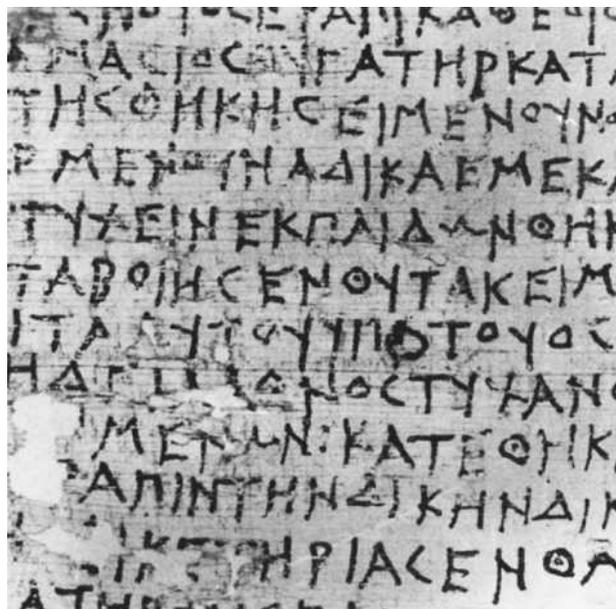 ΑΜΑϹΙΟϹΘΥΓΑΤΗΡΚΑΤΑ
ΤΗϹΘΗΚΗϹΕΙΜΕΝΟΥΝ
ΡΜΕΝΟΙΝΑΔΙΚΑΕΜΕΚΑ
ΤΥΧΕΙΝΕΚΠΑΙΔΩΝΘΗΚ
ΤΑΒΟΙΗϹΕΝΘΥΤΑΚΕΙΜ
ΙΤΑΑΥΤΟΥΥΠΟΤΟΥΟϹ
ΝΟϹΤΥΧΑΝ
ΜΕΝΩΝ:ΚΑΤΕΘΗΚ
ΑΠΙΝΤΗΝΔΙΚΗΝΔΙΚ
ΙΚΕΤΗΡΙΑϹΕΝΘΑ